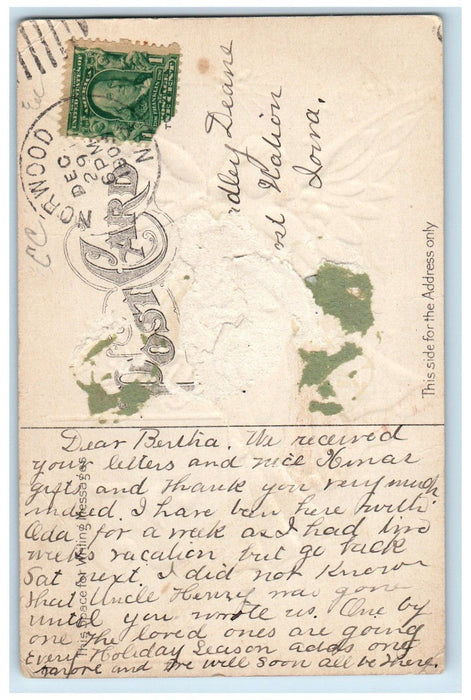 NORWOOD
DEC
29
6 PM
1908
N
CC
POST CARD
dley Deane
st Station
Iowa.
This side for the Address only
This Space for Writing Messages
Dear Bertha. We received
your letters and nice Xmas
gifts and thank you very much
indeed. I have been here with
Oda for a week as I had two
weeks vacation but go back
Sat next. I did not know
that Uncle Henry was gone
until you wrote us. One by
one the loved ones are going
Every Holiday Season adds one
more and we will soon all be there.